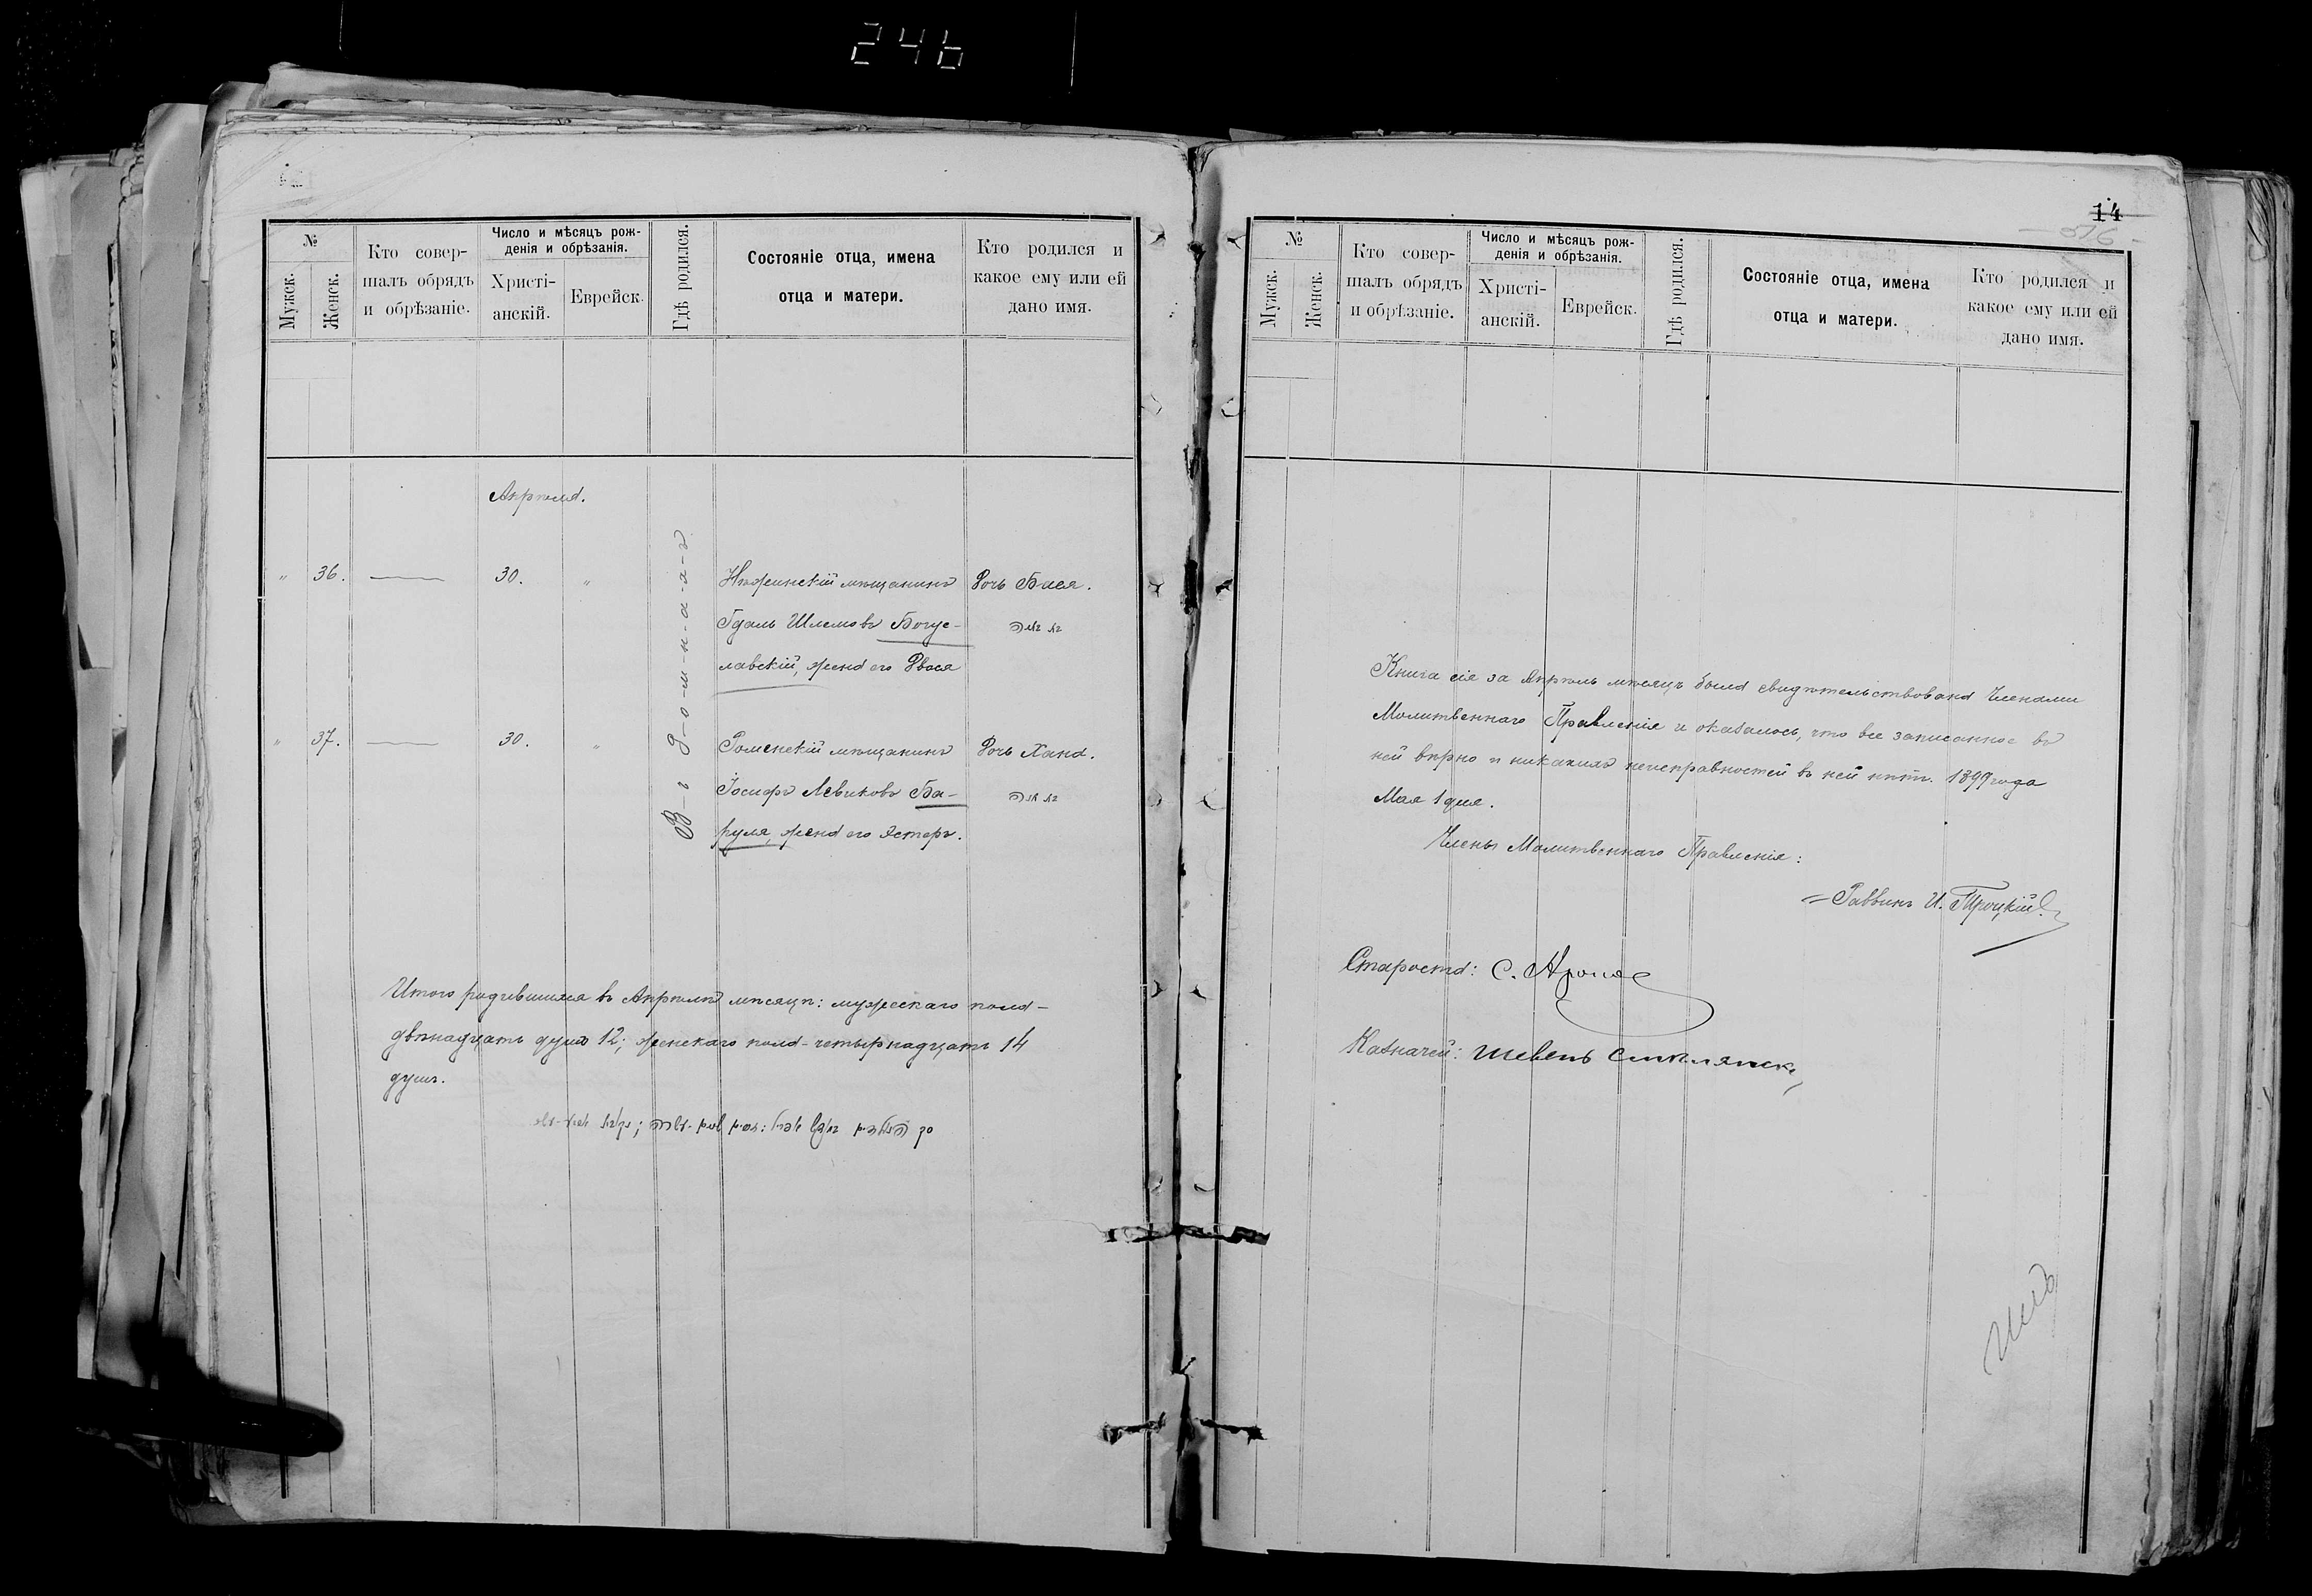 246
№
Мужск.
Женск.
Кто совер-
шалъ обрядъ
и обрѣзаніе.
Число и мѣсяцъ рож-
денія и обрѣзанія.
Христі-
анскій.
Еврейск.
Гдѣ родился.
Состояніе отца, имена
отца и матери.
Кто родился и
какое ему или ей
дано имя.
Апрѣля.
В-ъ Р-о-м-н-а-х-ъ
" 36. — 30. " Нѣжинскій мѣщанинъ Дочь Бася.
Гдаль Шлемовъ Богус-
лавскій, жена его Двося
" 37. — 30. " Роменскій мѣщанинъ Дочь Хана.
Іосифъ Левиковъ Ба-
руля, жена его Эстеръ.
Итого родившихся въ Апрѣлѣ мѣсяцѣ: мужескаго пола-
двѣнадцать душъ 12; женскаго пола-четырнадцать 14
душъ.
14
№
Мужск.
Женск.
Кто совер-
шалъ обрядъ
и обрѣзаніе.
Число и мѣсяцъ рож-
денія и обрѣзанія.
Христі-
анскій.
Еврейск.
Гдѣ родился.
Состояніе отца, имена
отца и матери.
Кто родился и
какое ему или ей
дано имя.
Книга сія за Апрѣль мѣсяцъ была свидѣтельствована Членами
Молитвеннаго Правленія и оказалось, что все записанное въ
ней вѣрно и никакихъ неисправностей въ ней нѣтъ. 1899 года
Мая 1 дня.
Члены Молитвеннаго Правленія:
Раввинъ И. Троцкій
Староста: С.
Казначей: Шевель